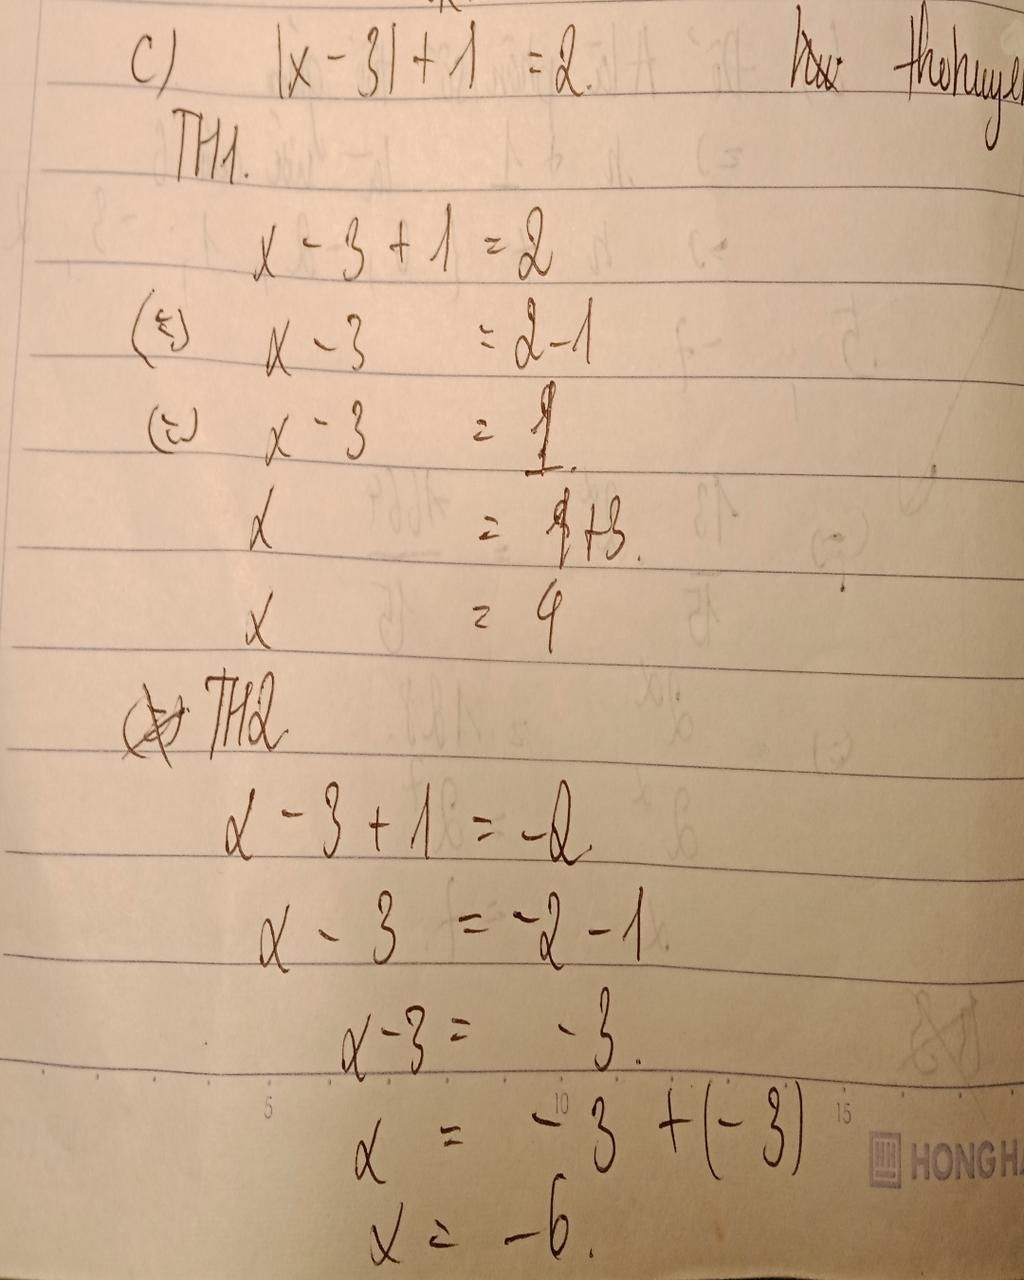 c) |x - 3| + 1 = 2.
TH1.
x - 3 + 1 = 2
(=) x - 3 = 2 - 1
(=) x - 3 = 1.
x = 1 + 3.
x = 4
TH2
x - 3 + 1 = -2
x - 3 = -2 - 1
x - 3 = -3.
5 10 15
x = -3 + (-3)
HONG HA
x = -6.